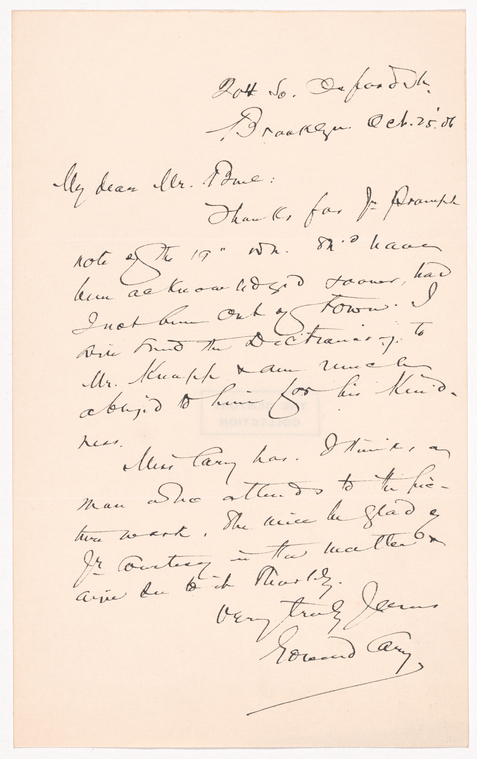 204 So. Oxford St.
Brooklyn. Oct. 25. 06
My dear Mr.
Thanks for yr prompt
note of the 19" shd have
been acknowledged sooner, had
I not been out of town. I
will send the Dictionary to
Mr. Knapp & am much
obliged to him for his kind-
ness.
Miss Cary has, I think, a
man who attends to the pic-
ture work. She will be glad of
yr courtesy in the matter &
will see to it shortly.
Very truly yours
Edward Cary